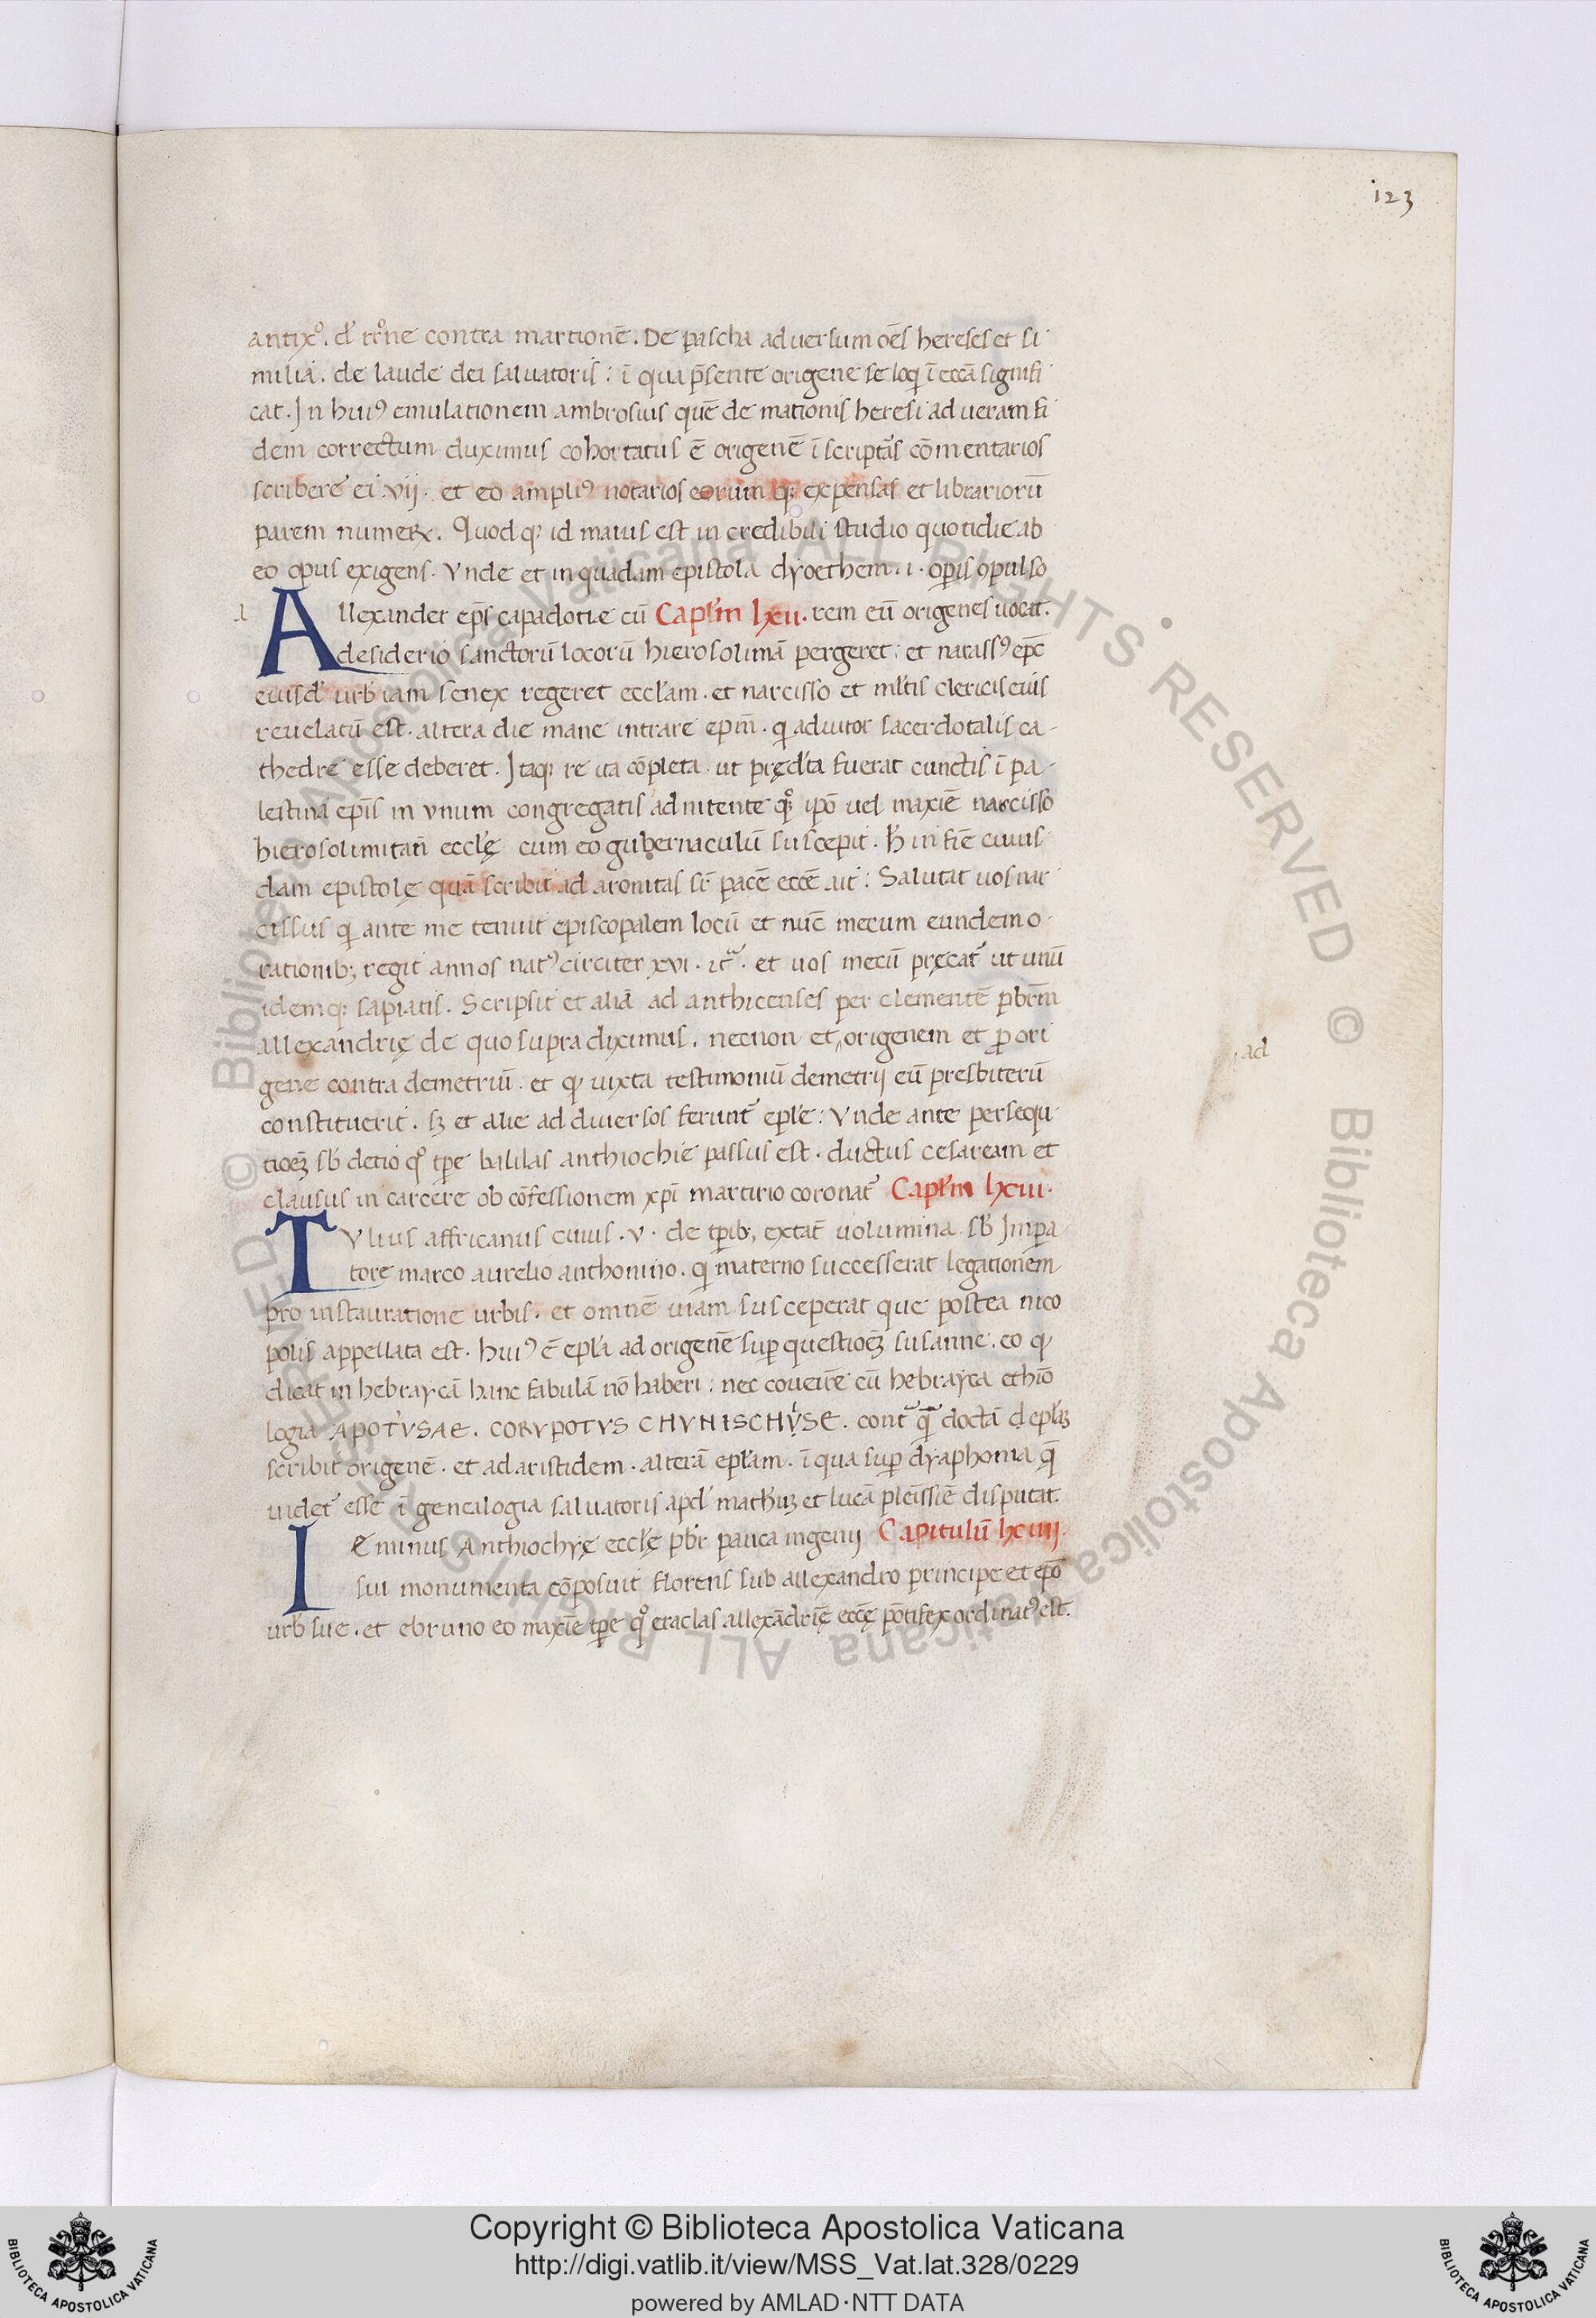 123
antix᷒. d' rr᷒ne contra martionē. De pascha aduersum oēs hereses et si
milia. de laude dei saluatoris: ī qua p̄sente origene se loq ī eccā signifi
cat. In hui᷒ emulationem ambrosius quē de mationis heresi ad ueram fi
dem correctum duximus cohortatus ē origenē ī scriptās cōmentarios
scribere ei .vij. et eo ampli᷒ notarios eorum q; expensas et librariorū
parem numeꝝ. Quod q; id maius est in credibili studio quotidie ab
eo opus exigens. Vnde et in quadam epistola dyoethem .i. opis opulso
Allexander ep̄s capadotie cū Capl'm lxii. rem eū origenes uocit.
desiderio sanctorū locorū hierosolimā pergeret: et narass᷒ ep̄c
eiusd' urb' iam senex regeret eccl'am. et narcisso et ml'tis clericis eius
reuelatū est. altera die mane intrare ep̄m. q adiutor sacerdotalis ca-
thedre esse deberet. Itaq; re ita cōpleta. ut pręd'ta fuerat cunctis ī pa-
lestina ep̄is in vnum congregatis adnitente q᷒; ip̄o uel maxiē narcisso
hierosolimitan̄ eccl'ę cum eo gubernaculū suscepit. h' in fiē cuius
dam epistolę quā scribit ad aronitas sr̄ pacē eccē ait: Salutat uos nar
cissus q ante me tenuit episcopalem locū et nūc mecum eundem o-
rationib; regit annos nat᷒ circiter xvi. it᷒. et uos mecū pręcat᷒ ut unū
idemq; sapiatis. Scripsit et aliā ad anthicenses per clementē pb̄rm̄
allexandrię de quo supra diximus. necnon et origenem et ꝓ ori
ad
gene contra demetriū. et qꝫ iuxta testimoniū demetrij eū presbiterū
constituerit. sꝫ et alie ad diuersos ferunt᷒ epl'e: Vnde ante persequ
tioēꝫ sb' detio q᷒ tp̄e balilas anthiochie passus est. ductus cesaream et
clausus in carcere ob cōfessionem xp̄i martirio coronat᷒ Capl'm lxiii.
Tvlius affricanus cuius .v. de tp̄ib; extāt uolumina sb' Impa
tore marco aurelio anthonino. q materno successerat legationem
pro instauratione urbis. et omnē uiam susceperat que postea nico
polis appellata est. hui᷒ ē epl'a ad origenē sup questioēꝫ susanne. eo qꝫ
dicat in hebraycā hanc fabulā nō haberi: nec coueire cū hebrayca ethio
logia APOTVSAE. CORVPOTVS CHVNISCHVSE. cont᷒ q̄ doctā d epl'aꝫ
scribit origenē. et ad aristidem. alterā epl'am. ī qua sup dyaphonia q̄
uidet᷒ esse ī genealogia saluatoris apd' math'ꝫ et lucā plēissiē disputat.
IEminus Anthiochyę eccl'ę pb'r parua ingenij Capitulū lxiiii.
sui monumenta cōposuit florens sub allexandro principe et ep̄o
urb' sue. et ebruno eo maxīe tp̄e q᷒ eraclas allexādrię eccę pōtifex ordinat᷒ est.
Copyright © Biblioteca Apostolica Vaticana
http://digi.vatlib.it/view/MSS_Vat.lat.328/0229
powered by AMLAD·NTT DATA